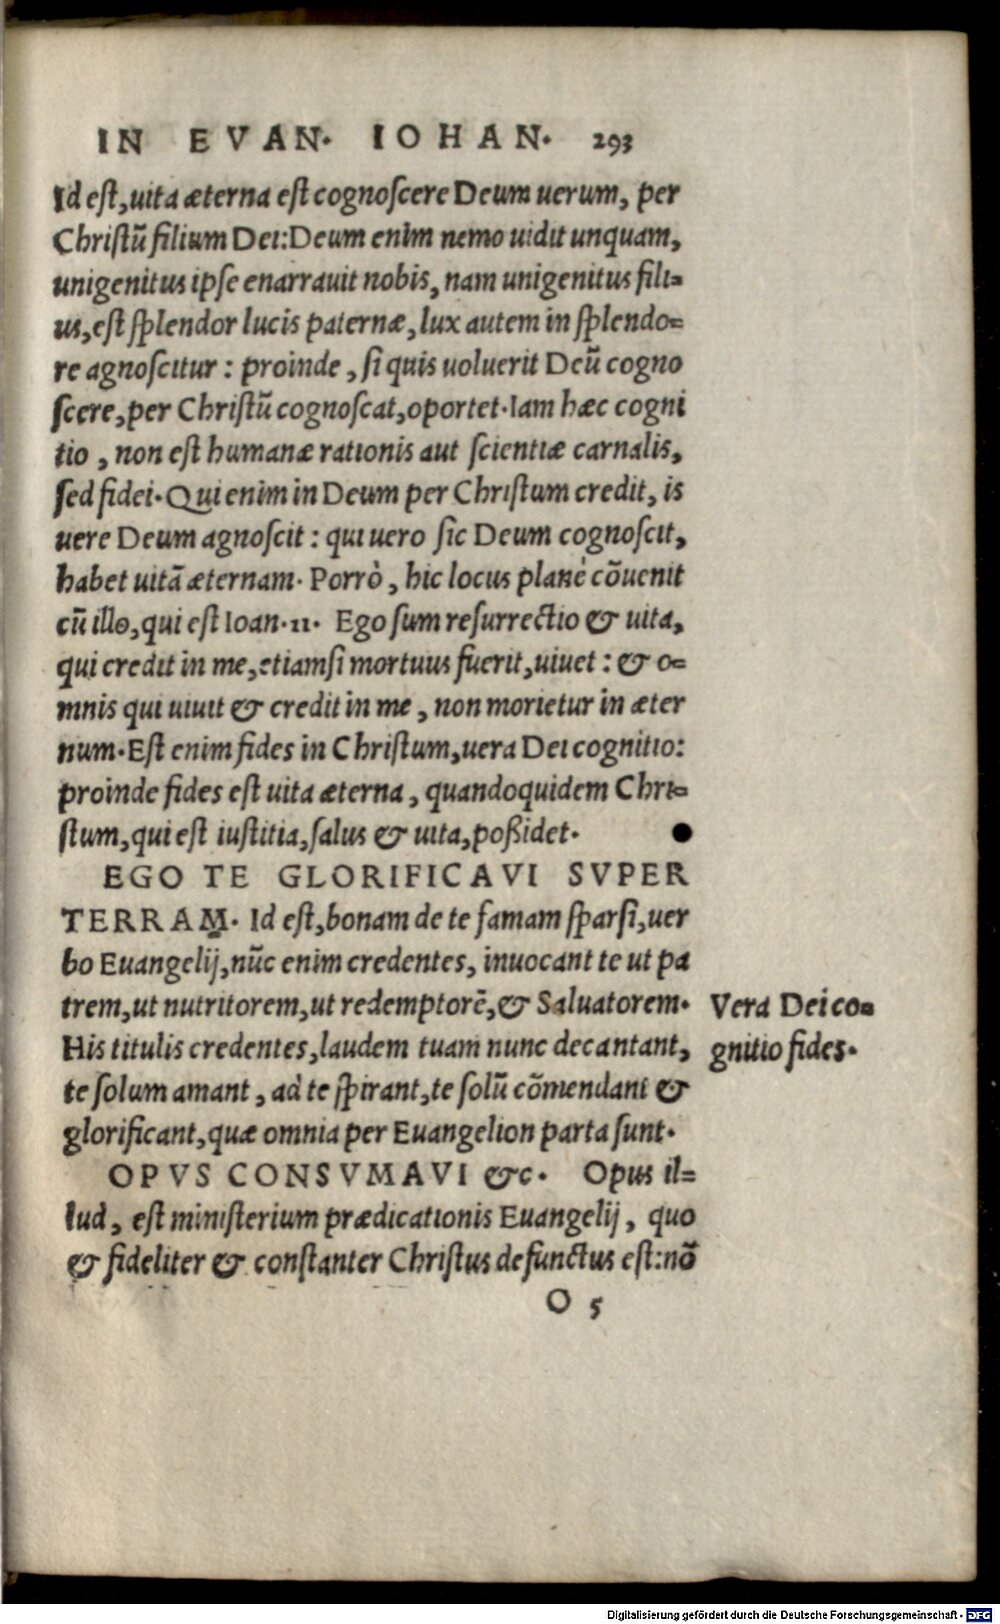 IN EVAN. IOHAN. 293
Id est, uita æterna est cognoscere Deum uerum, per
Christũ filium Dei: Deum enim nemo uidit unquam,
unigenitus ipse enarrauit nobis, nam unigenitus fili=
us, est splendor lucis paternæ, lux autem in splendo=
re agnoscitur : proinde, si quis uoluerit Deũ cogno
scere, per Christũ cognoscat, oportet. Iam hæc cogni
tio, non est humanæ rationis aut scientiæ carnalis,
sed fidei. Qui enim in Deum per Christum credit, is
uere Deum agnoscit : qui uero sic Deum cognoscit,
habet uitã æternam. Porrò, hic locus planè cõuenit
cũ illo, qui est Ioan. 11. Ego sum resurrectio & uita,
qui credit in me, etiamsi mortuus fuerit, uiuet : & o=
mnis qui uiuit & credit in me, non morietur in æter
num. Est enim fides in Christum, uera Dei cognitio:
proinde fides est uita æterna, quandoquidem Chri=
stum, qui est iustitia, salus & uita, poßidet.
EGO TE GLORIFICAVI SVPER
TERRAM. Id est, bonam de te famam sparsi, uer
bo Euangelij, nũc enim credentes, inuocant te ut pa
trem, ut nutritorem, ut redemptorẽ, & Saluatorem.
His titulis credentes, laudem tuam nunc decantant,
te solum amant, ad te spirant, te solũ cõmendant &
glorificant, quæ omnia per Euangelion parta sunt.
Vera Dei co=
gnitio fides.
OPVS CONSVMAVI &c. Opus il=
lud, est ministerium prædicationis Euangelij, quo
& fideliter & constanter Christus defunctus est: nõ
O 5
Digitalisierung gefördert durch die Deutsche Forschungsgemeinschaft - DFG